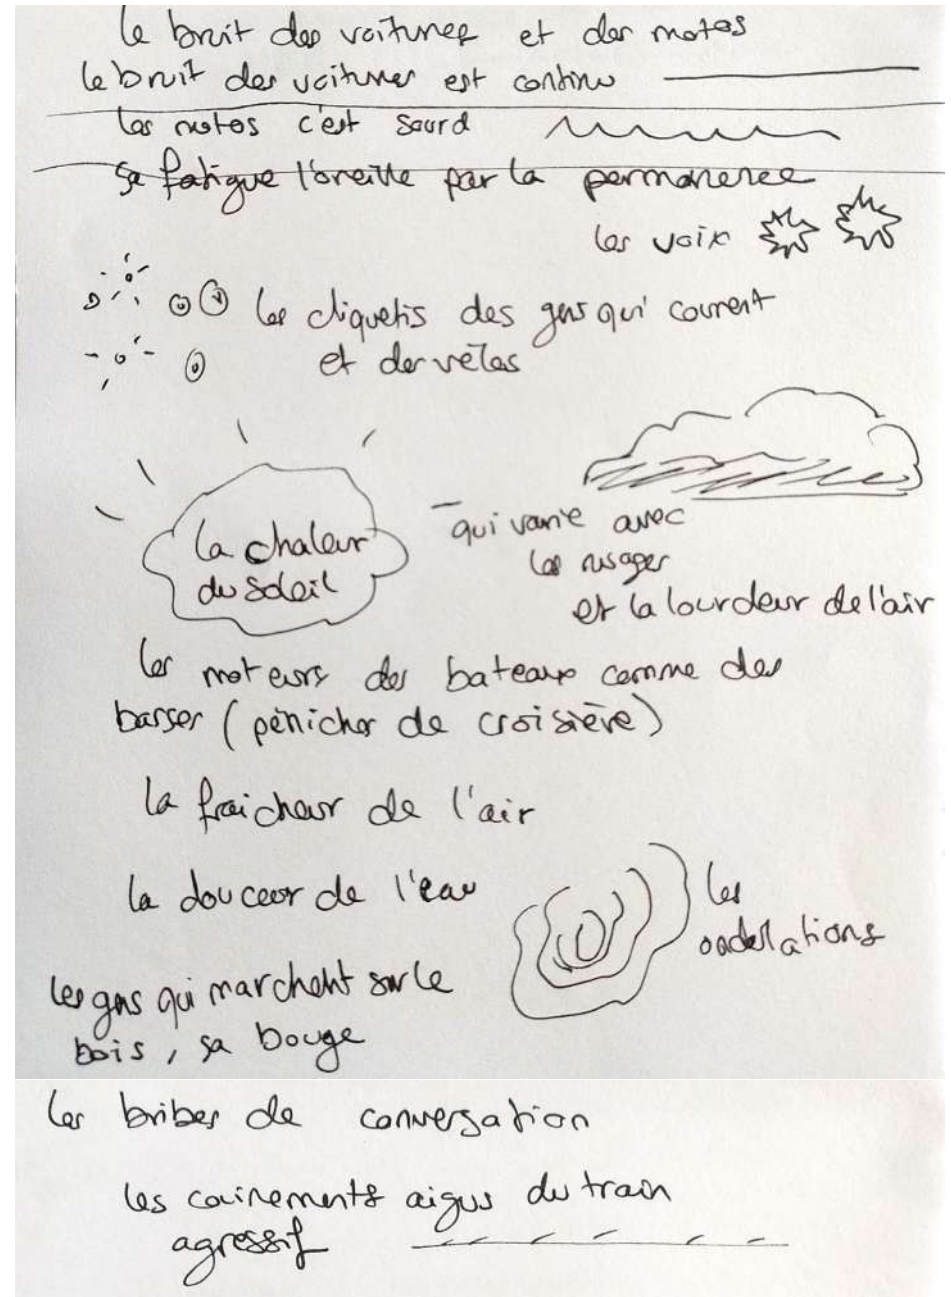 le bruit des voitures et des motos
le bruit des voitures est continu
les motos c'est sourd
sa fatigue l'oreille par la permanence
les voix
les cliquetis des gens qui courent
et des vélos
la chaleur
du soleil
qui varie avec
les nuages
et la lourdeur de l'air
les moteurs des bateaux comme des
basses (péniches de croisière)
la fraicheur de l'air
la douceur de l'eau
les
ondulations
les gens qui marchent sur le
bois, sa bouge
les bribes de conversation
les couinements aigus du train
agressif